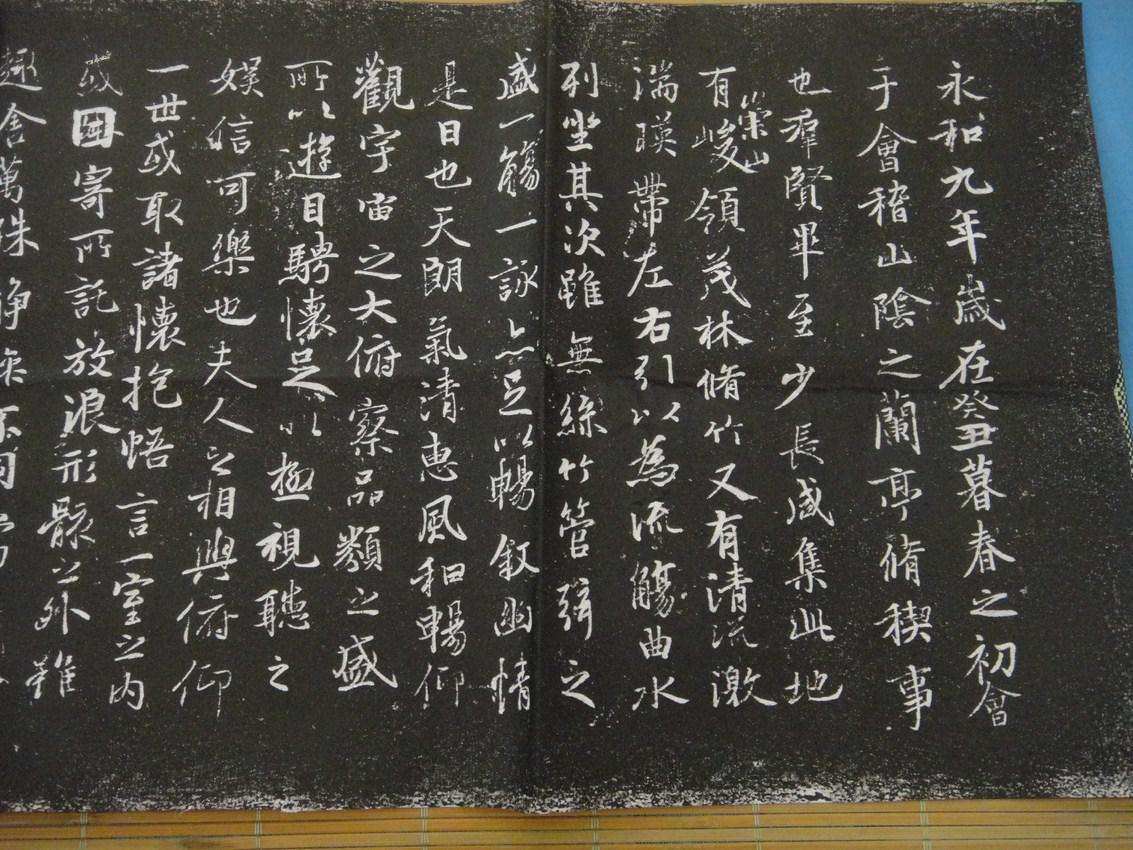 永和九年歲在癸丑暮春之初會
于會稽山陰之蘭亭脩稧事
也羣賢畢至少長咸集此地
有崇山峻領茂林脩竹又有清流激
湍暎帶左右引以為流觴曲水
列坐其次雖無絲竹管弦之
盛一觴一詠亦足以暢敘幽情
是日也天朗氣清惠風和暢仰
觀宇宙之大俯察品類之盛
所以遊目騁懷足以極視聽之
娛信可樂也夫人之相與俯仰
一世或取諸懷抱悟言一室之內
或因寄所託放浪形骸之外雖
趣舍萬殊靜躁不同當